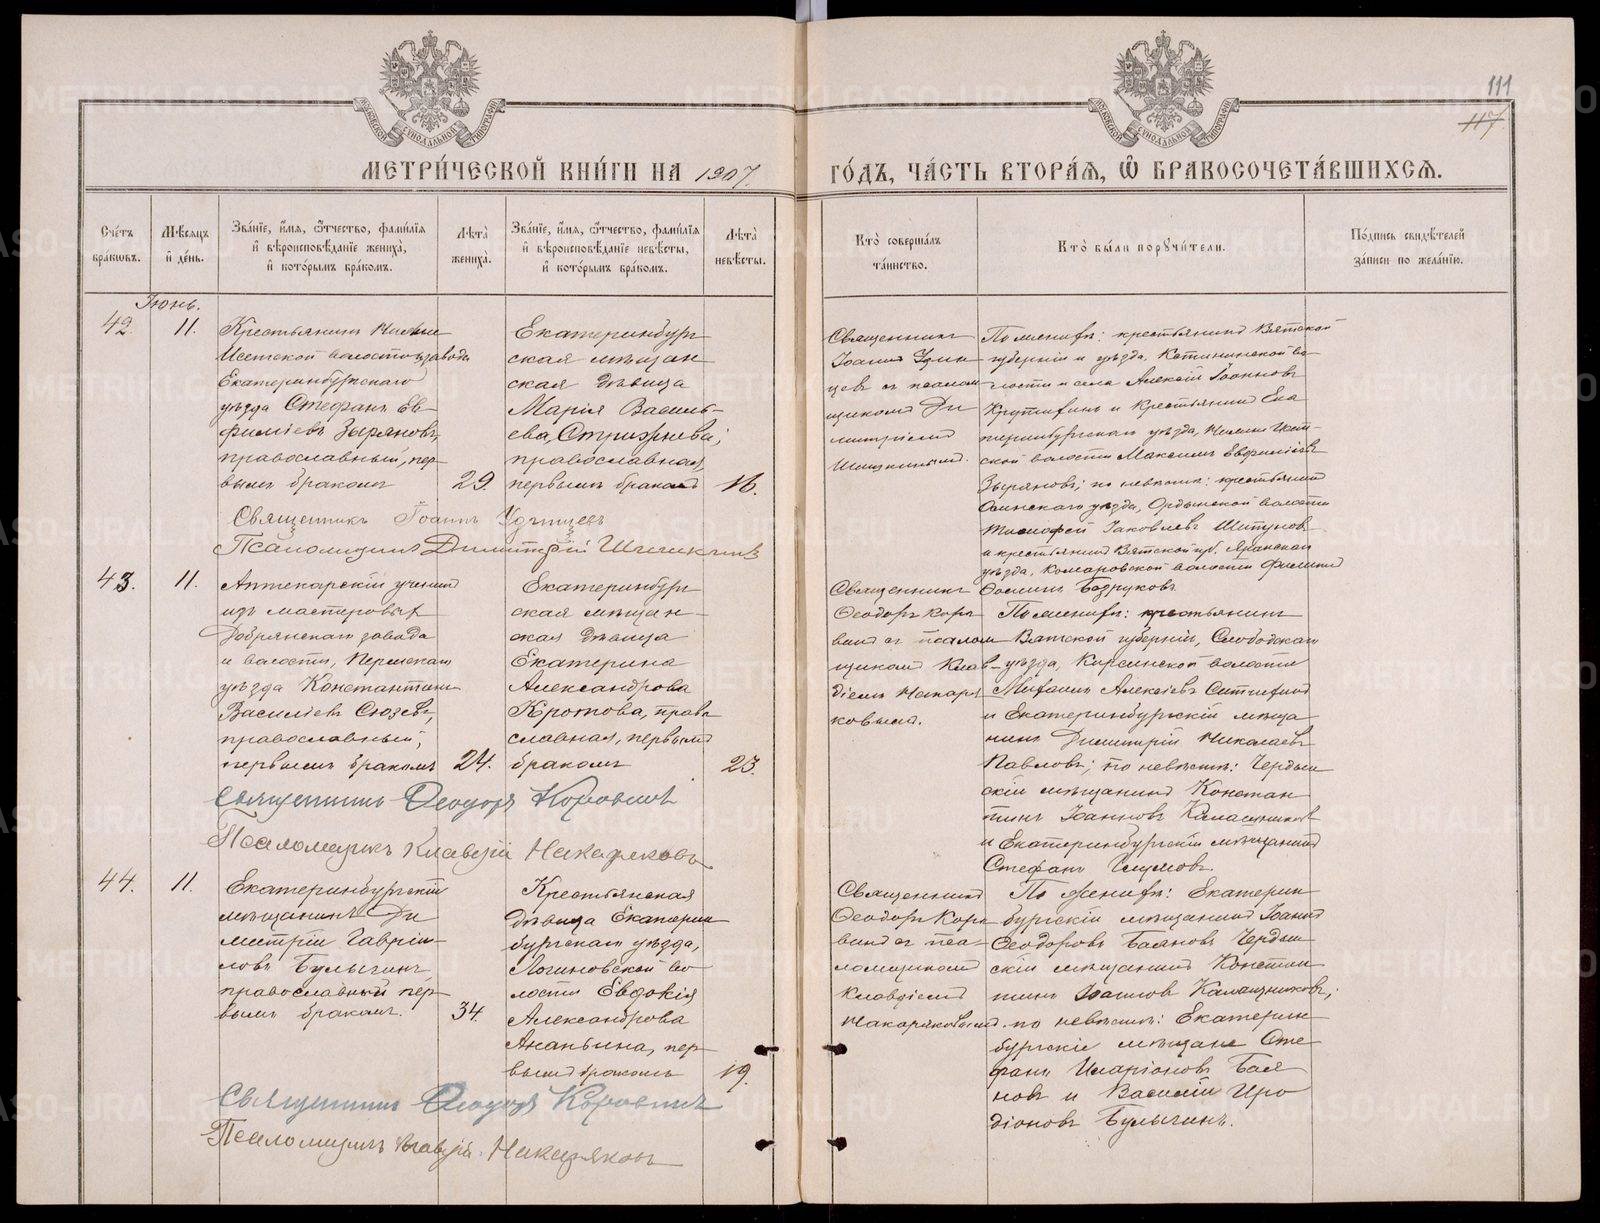 111
117
МЕТРИ́ЧЕСКОЙ КНИ́ГИ НА 1907.
ГО́ДЪ, ЧА́СТЬ ВТОРА́Я, Ѡ҆ БРАКОСОЧЕТА́ВШИХСЯ.
Сче́тъ
бра́кѡвъ.
Мѣсяцъ
и҆ де́нь.
Зва́нїе, и҆́мя, ѻ҆́тчество, фами́лїя
и҆ вѣроисповѣданїе жениха̀,
и҆ кото́рымъ бра́комъ.
Лѣта̀
жениха̀.
Зва́нїе, и҆́мя, ѻ҆́тчество, фами́лїя
и҆ вѣроисповѣданїе невѣсты,
и҆ кото́рымъ бра́комъ.
Лѣта̀
невѣсты.
Кто̀ соверша́лъ
та́инство.
Кто̀ бы́ли порꙋчи́тели.
По́дпись свидѣтелей
за́писи по жела́нїю.
Іюнь.
42.
11.
Крестьянинъ Нижне
Исетской волости и завода
Екатеринбургскаго
уѣзда Стефанъ Ев-
фиміевъ Зыряновъ,
православный, пер-
вымъ бракомъ
29.
Екатеринбург
ская мѣщан
ская дѣвица
Марія Василь-
ева Стрижнева;
православная,
первымъ бракомъ
16.
Священникъ
Іоаннъ Удин
цевъ съ псалом
щикомъ Ди
митріемъ
По женихѣ: крестьянинъ Вятской
губерніи и уѣзда,
лости и села Алексій Іоанновъ
и крестьянинъ Ека
теринбургскаго уѣзда, Нижне Исет-
ской волости Максимъ Евфиміевъ
Зыряновъ; по невѣстѣ: крестьянинъ
Осинскаго уѣзда, Ордынской волости
Тимофей Іаковлевъ Шитуновъ
и крестьянинъ Вятской губ. Яранскаго
уѣзда, Комаровской волости Филиппъ
Безруковъ
Священникъ Іоаннъ Удинцевъ
Псаломщикъ Димитрій
43.
11.
Аптекарскій ученикъ
изъ мастеровыхъ
Добрянскаго завода
и волости, Пермскаго
уѣзда Константинъ
Василіевъ Сюзевъ,
православный,
первымъ бракомъ
24.
Екатеринбург
ская мѣщан-
ская дѣвица
Екатерина
Александрова
Кротова, право
славная, первымъ
бракомъ
23.
Священникъ
Ѳеодоръ Коро
винъ съ псалом
щикомъ Клав-
діемъ Накаря
ковымъ.
По женихѣ: крестьянинъ
Вятской губерніи, Слободскаго
уѣзда, Кирсинской волости
Михаилъ Алексіевъ Ситниковъ
и Екатеринбургскій мѣща
нинъ Димитрій Николаевъ
Павловъ; по невѣстѣ: Чердын
скій мѣщанинъ Констан
тинъ Іоанновъ Калашниковъ
и Екатеринбургскій мѣщанинъ
Стефанъ
Священникъ Ѳеодоръ Коровинъ
Псаломщикъ Клавдій Накаряковъ
44.
11.
Екатеринбургскій
мѣщанинъ Ди
митрій Гавріи-
ловъ Булыгинъ,
православный пер
вымъ бракомъ.
34.
Крестьянская
дѣвица Екатерин
бургскаго уѣзда,
Логиновской во
лости Евдокія
Александрова
Ананьина, пер-
вымъ бракомъ
19.
Священникъ
Ѳеодоръ Коро
винъ съ пса-
ломщикомъ
Клавдіемъ
Накаряковымъ.
По женихѣ: Екатерин
бургскій мѣщанинъ Іоаннъ
Ѳеодоровъ Баяновъ Чердын
скій мѣщанинъ Констан
тинъ Іоанновъ Калашниковъ;
по невѣстѣ: Екатерин
бургскіе мѣщане Сте
фанъ Иларіоновъ Бая
новъ и Василій Иро
діоновъ Булыгинъ.
Священникъ Ѳеодоръ Коровинъ
Псаломщикъ Клавдій Накаряковъ